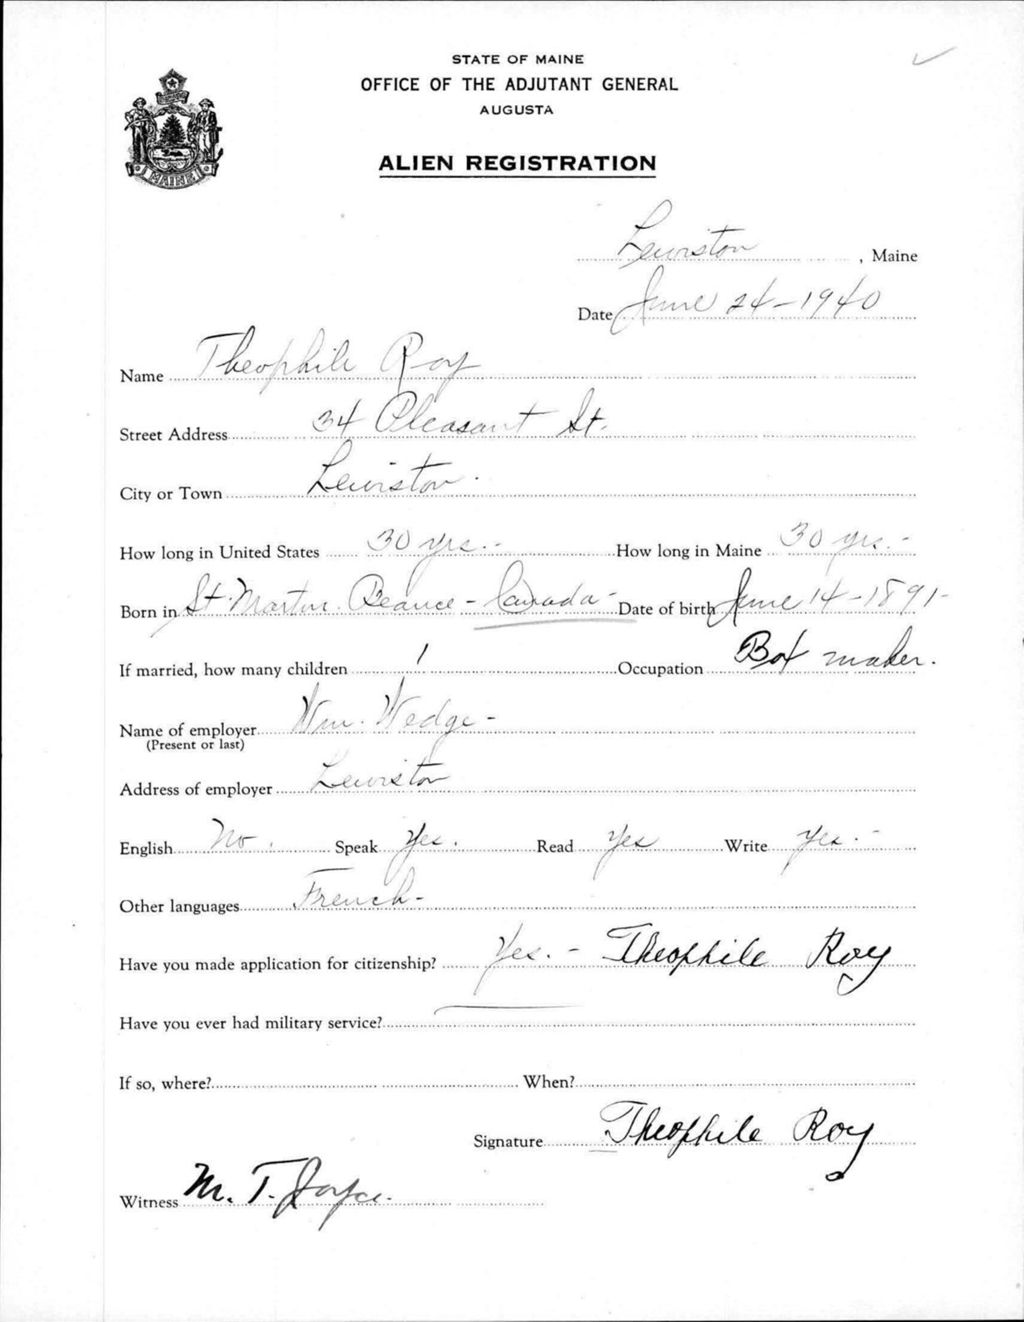 STATE OF MAINE
OFFICE OF THE ADJUTANT GENERAL
AUGUSTA
ALIEN REGISTRATION
MAINE
Lewiston, Maine
Date June 24-1940
Name Theophile Roy
Street Address 34 Pleasant St.
City or Town Lewiston.
How long in United States 30 yrs.- How long in Maine 30 yrs.-
Born in St. Martin. Beauce - Canada - Date of birth June 14-1891-
If married, how many children 1 Occupation Box maker.
Name of employer Wm. Wedge-
(Present or last)
Address of employer Lewiston
English No. Speak Yes. Read Yes Write Yes.-
Other languages French-
Have you made application for citizenship? Yes.- Theophile Roy
Have you ever had military service? —
If so, where? When?
Signature Theophile Roy
Witness M. T. Joyce.